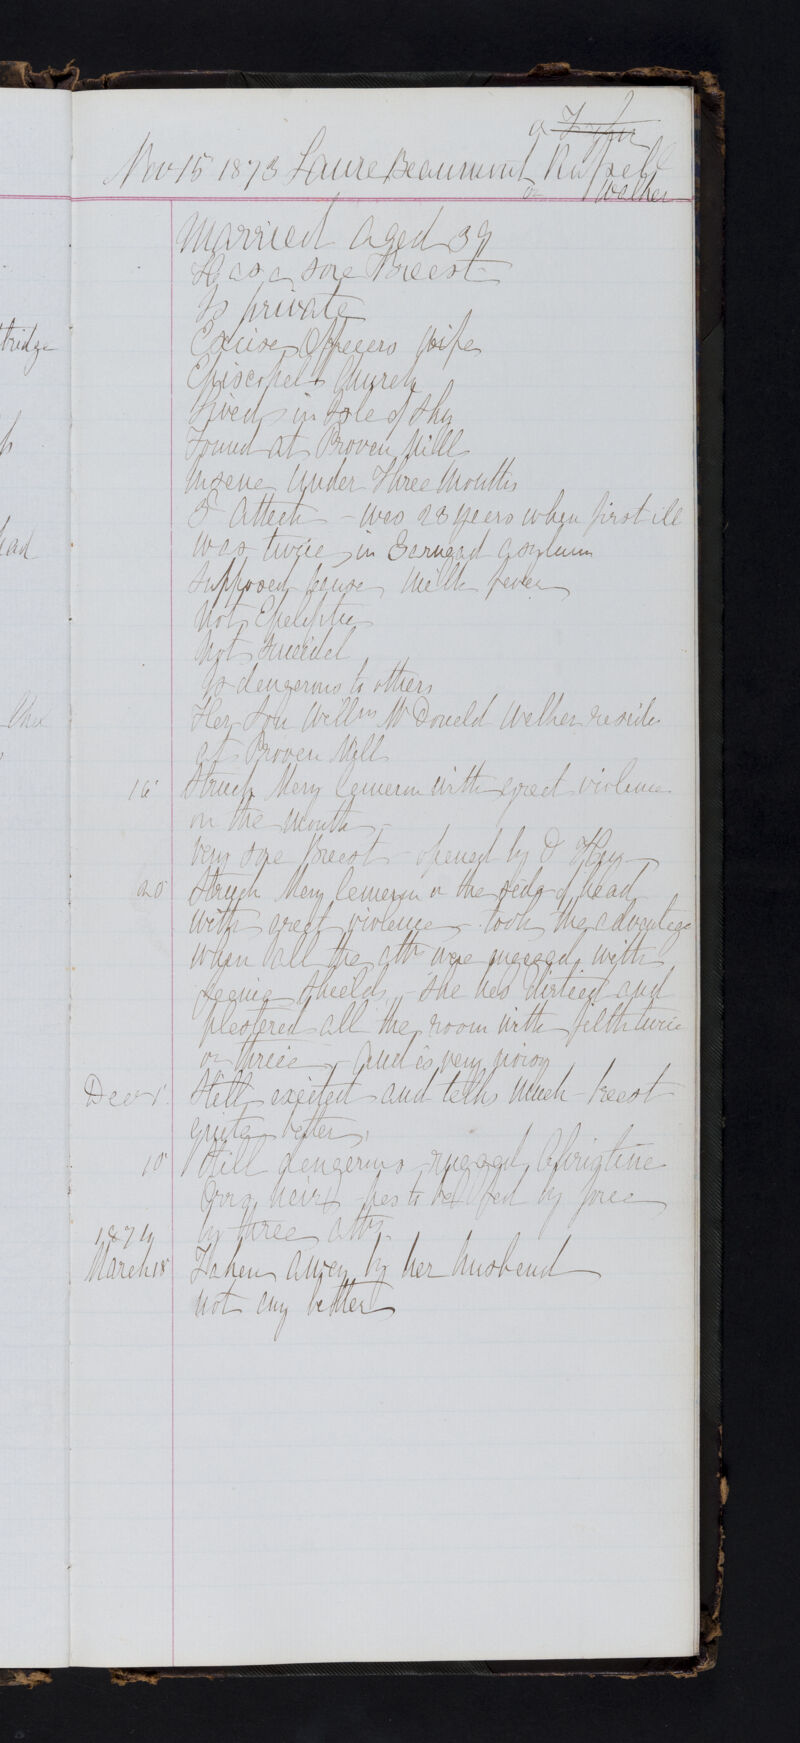 Nov 15 1873 Laura Beaumont Russell
or Walker
Married aged 39
Has a sore Breast
Is private
Excise Officers wife
Episcopel Church
Lived in Isle of Sky
Found at Proven Mill
Insane Under Three Months
3d Attack - was 28 years when first ill
was twice in asylum
Supposed cause Milk fever
Not Epileptic
Not Suicidal
Is dangerous to others
Her Son Willm McDonald Walker resides
at Proven Mill
16 Struck Mary Cameron with great violence
on the Mouth
Very sore Breast - opened by D Hay
20 Struck Mary Cameron on the side of head
with great violence - took the advantage
when all the atts were engaged with
Sheils - She has dirtied and
plastered all the room with filth twice
or thrice - and is very noisy
Decr 1 Still excited and talks Much - breast
quite better
10 Still dangerous - Christine
hair - has to be fed by force
by three atts
1874
March 18 Taken away by her husband
not any better
ttridge
ead